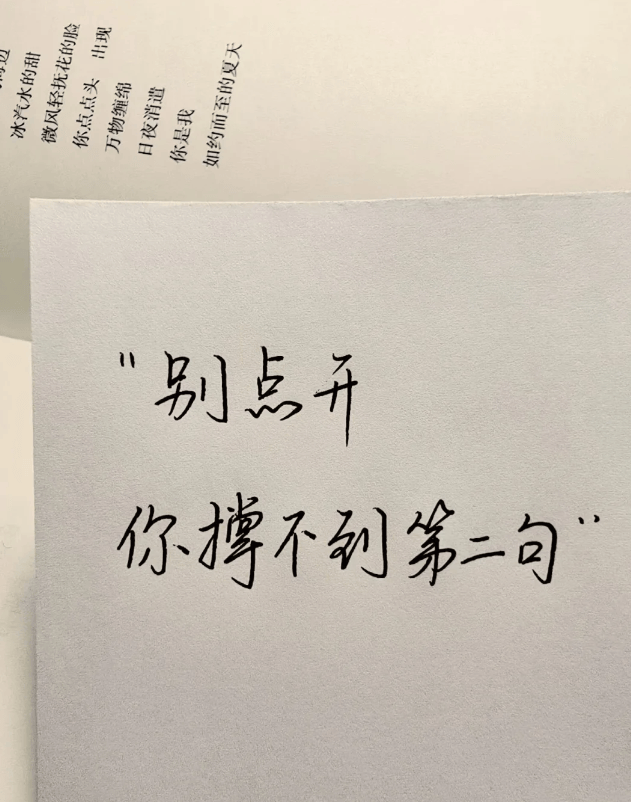 冰汽水的甜
微风轻抚花的脸
你点点头 出现
万物缠绵
日夜消遣
你是我
如约而至的夏天
"别点开
你撑不到第二句"